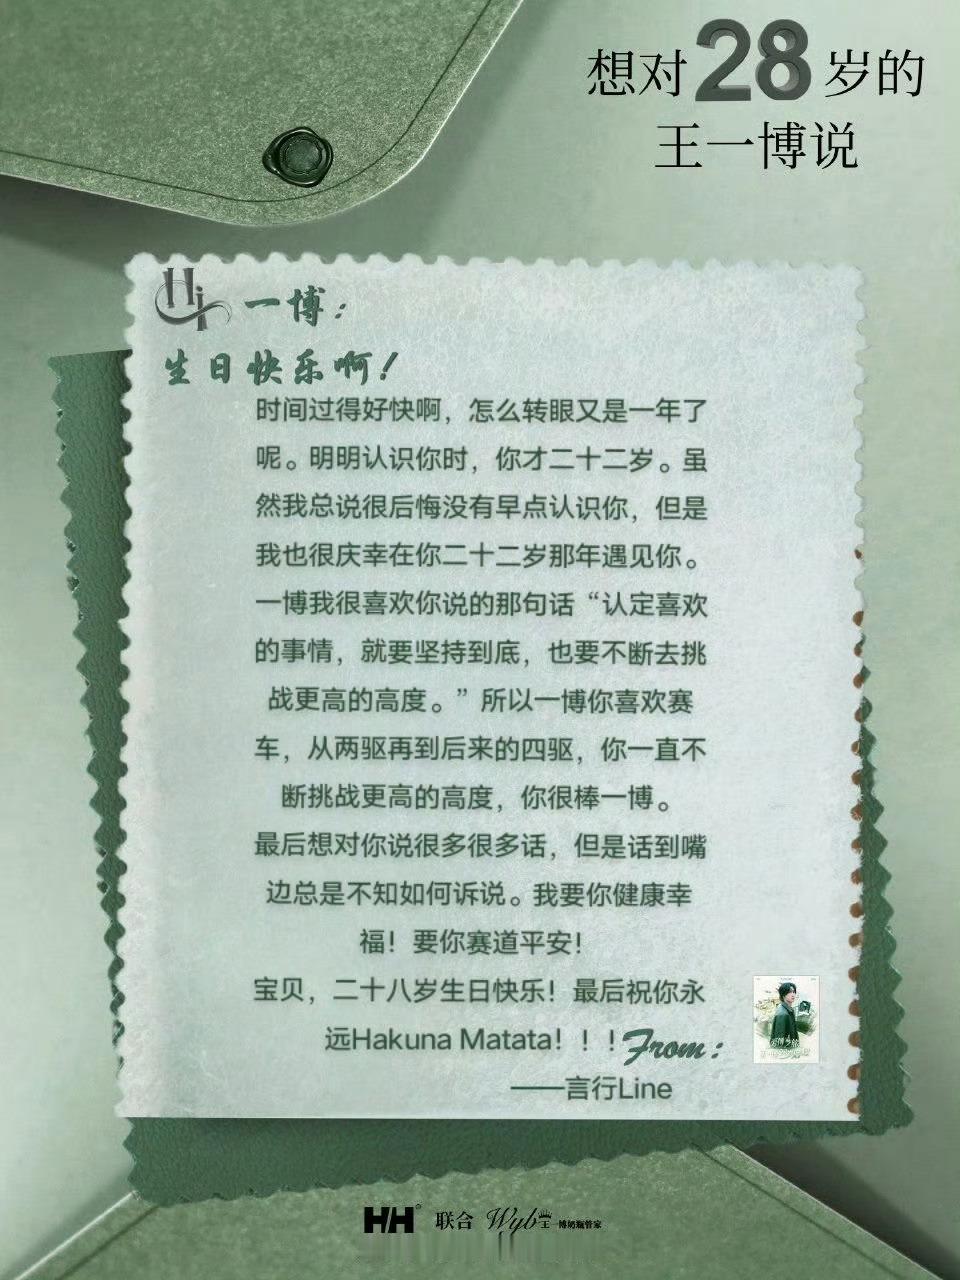 想对28岁的
王一博说
Hi 一博：
生日快乐啊！
时间过得好快啊，怎么转眼又是一年了
呢。明明认识你时，你才二十二岁。虽
然我总说很后悔没有早点认识你，但是
我也很庆幸在你二十二岁那年遇见你。
一博我很喜欢你说的那句话“认定喜欢
的事情，就要坚持到底，也要不断去挑
战更高的高度。”所以一博你喜欢赛
车，从两驱再到后来的四驱，你一直不
断挑战更高的高度，你很棒一博。
最后想对你说很多很多话，但是话到嘴
边总是不知如何诉说。我要你健康幸
福！要你赛道平安！
宝贝，二十八岁生日快乐！最后祝你永
远Hakuna Matata！！！
From：
——言行Line
HH 联合 Wyb 王一博奶瓶管家